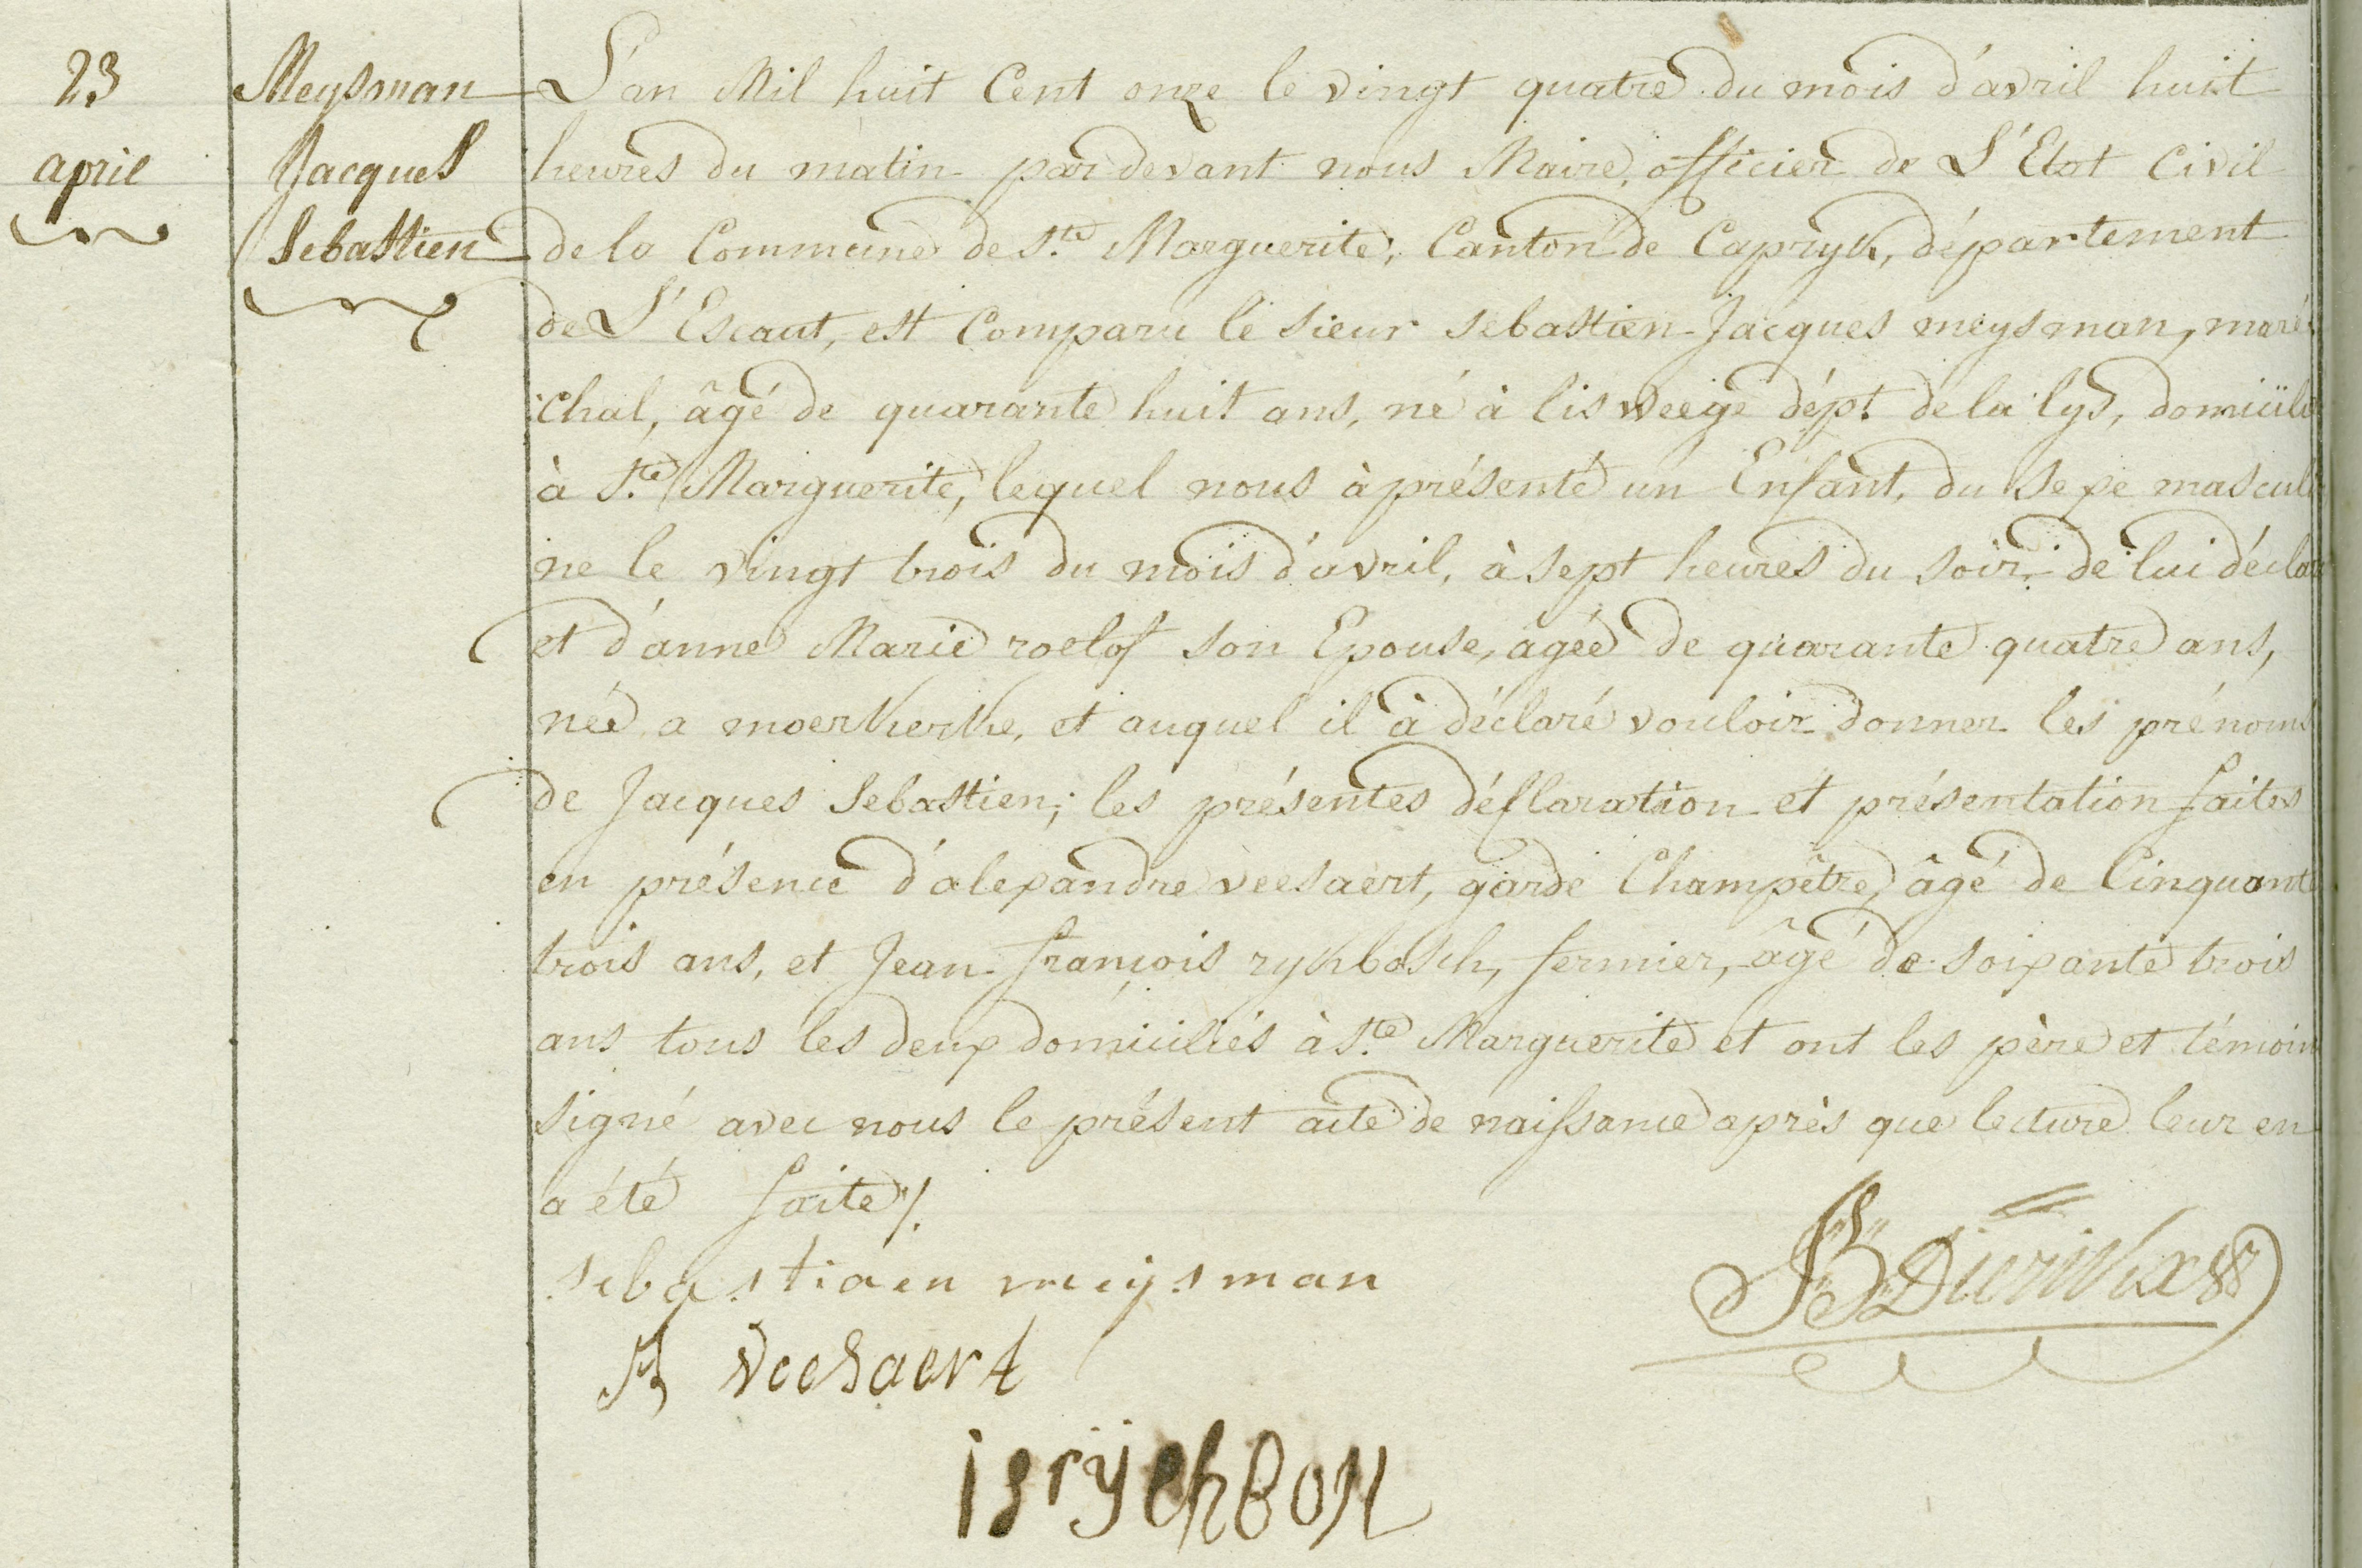 23
april
Meysman
Jacques
Sebastien
L'an Mil huit Cent onze le vingt quatre du mois d'avril huit
heures du matin par devant nous Maire, officier de L'Etat Civil
de la Commune de Ste Marguerite, Canton de Capryk, département
de L'Escaut, est Comparu le sieur sebastien Jacques meysman, maré
chal, âgé de quarante huit ans, né à lisweege dépt de la lys, domicilé
à Ste Marguerite, lequel nous à présenté un Enfant, du sexe masculi
ne le vingt trois du mois d'avril, à sept heures du soir, de lui déclara
et d'anne Marie roelof son Epouse, agée de quarante quatre ans,
née a moerkerke, et auquel il à déclaré vouloir donner les prénoms
de Jacques Sebastien; les présentes déclaration et présentation faites
en présence d'alexandre veesaert, garde Champêtre, âgé de Cinquante
trois ans, et Jean françois rykbosch, fermier, âgé de soixante trois
ans tous les deux domiciliés à Ste Marguerite et ont les père et témoins
signé avec nous le présent acte de naissance après que lecture leur en
a été faite /.
sebastiaen meysman
veesaert